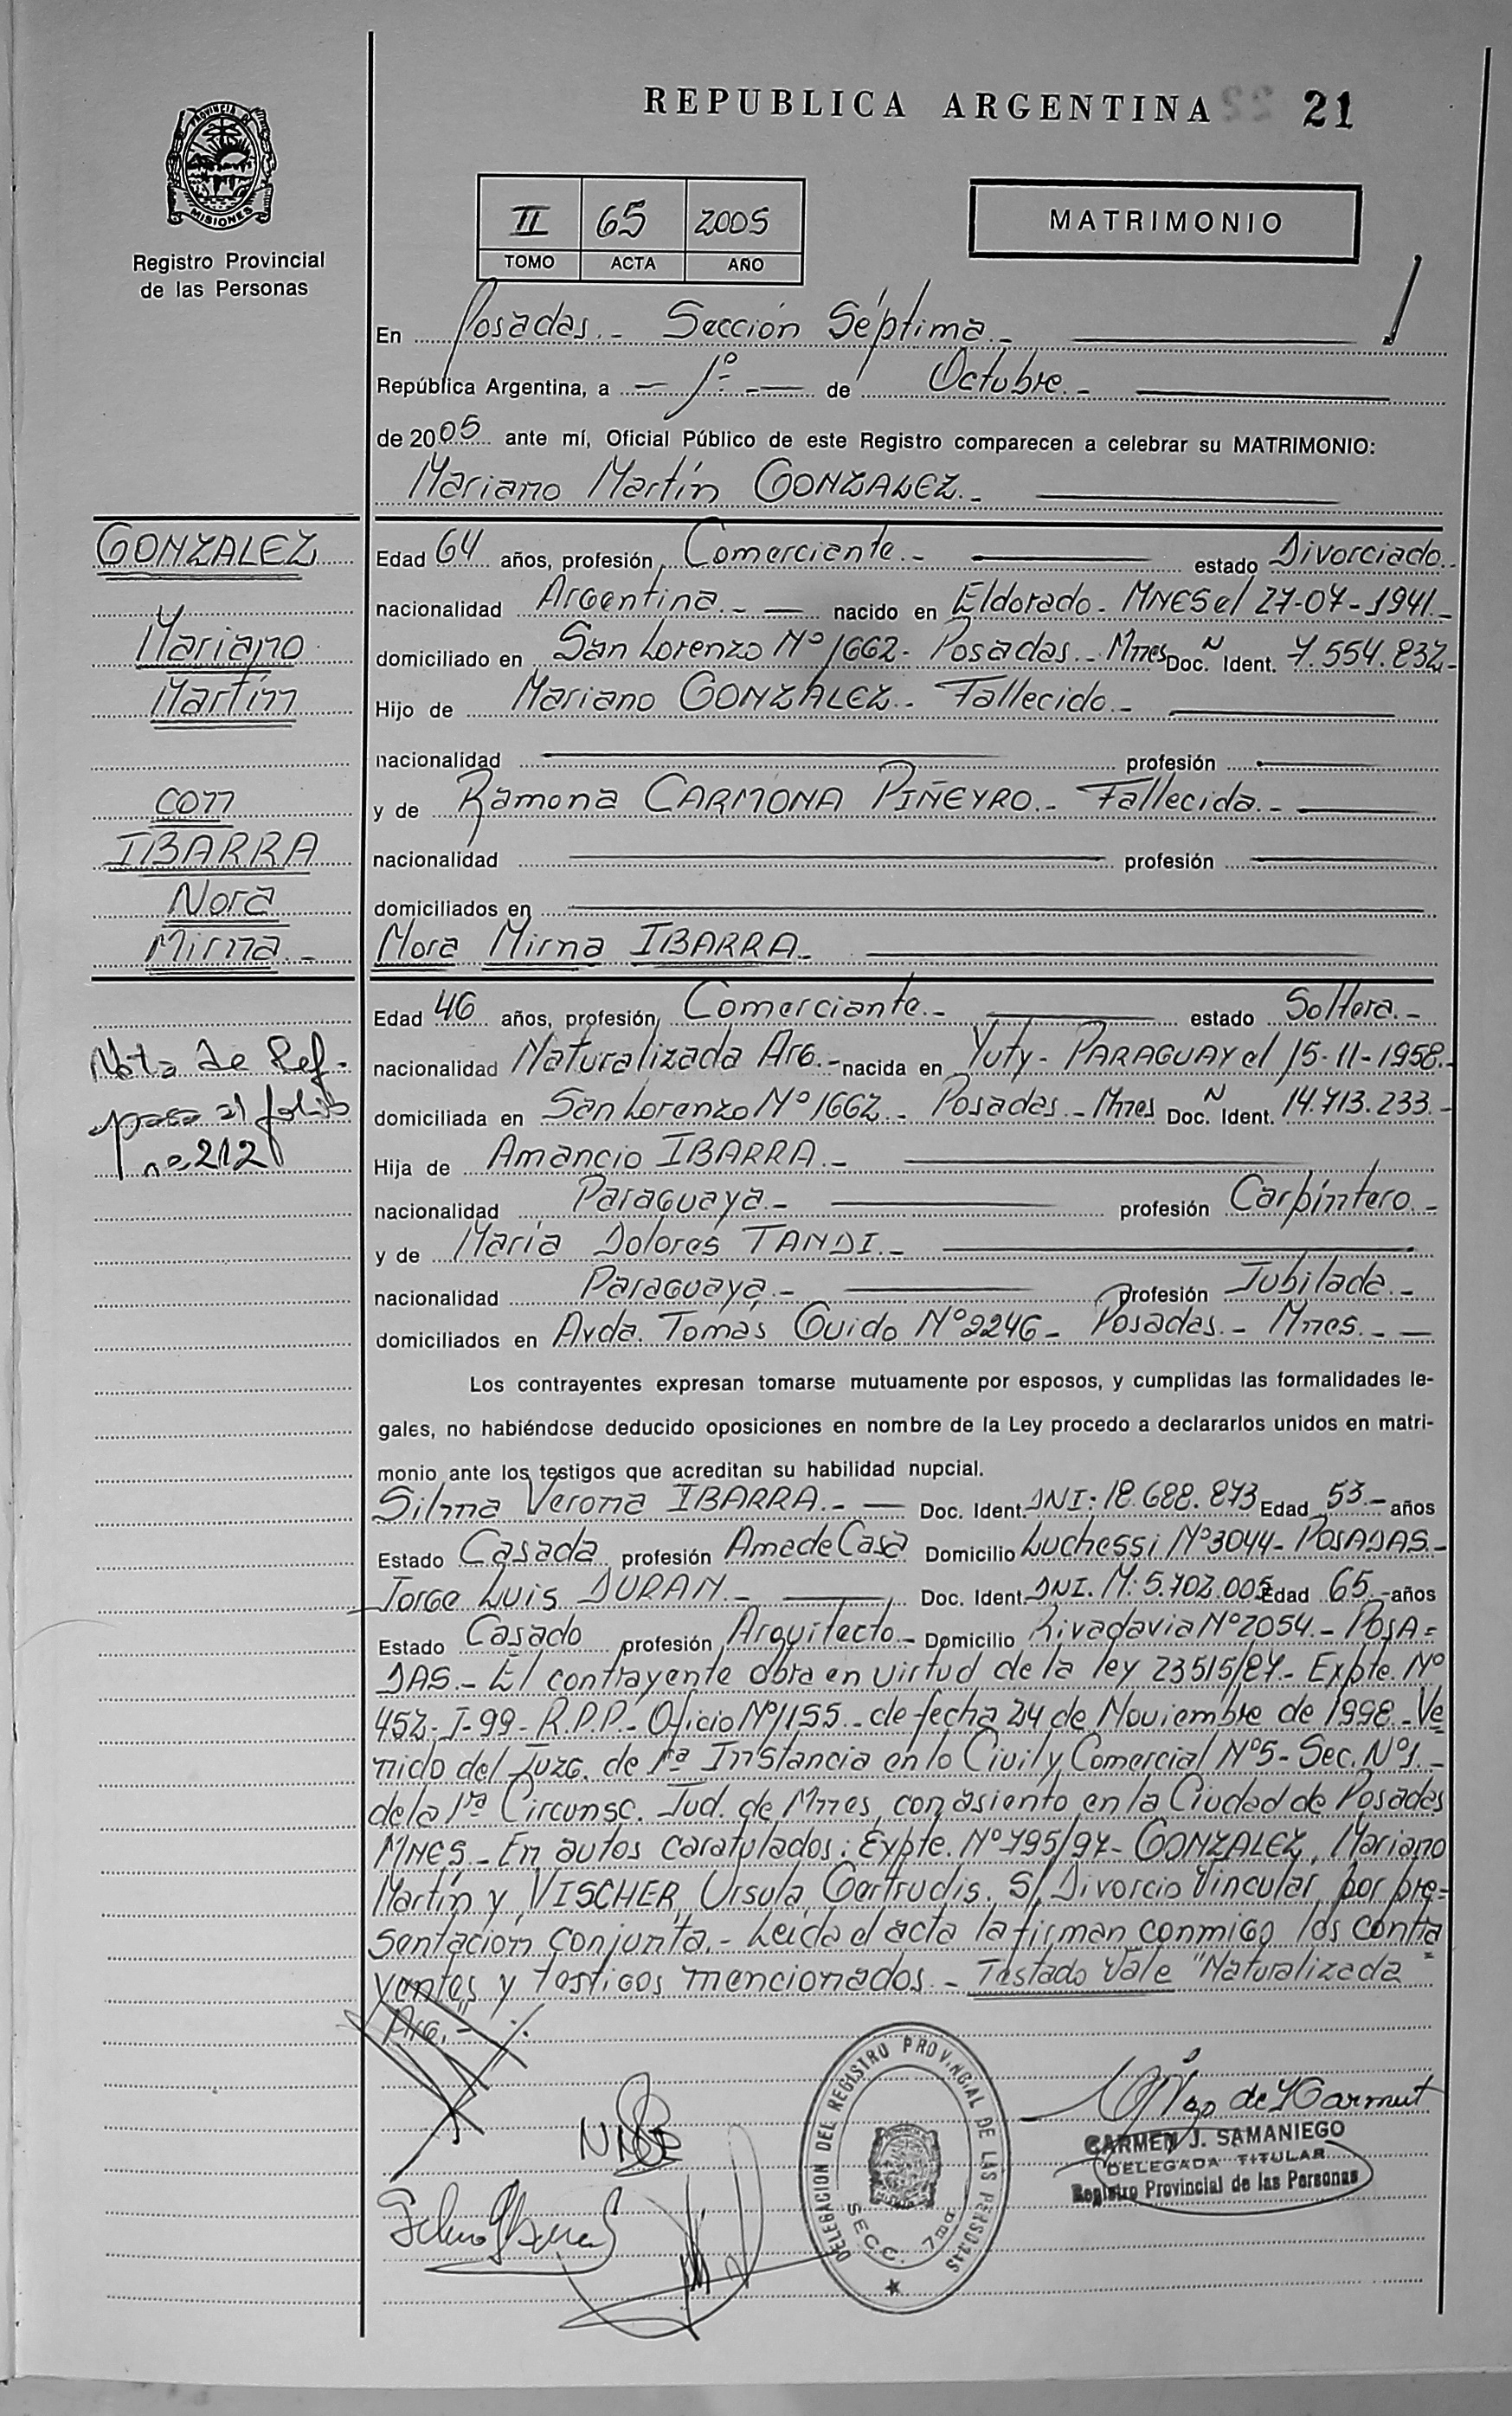 REPUBLICA ARGENTINA 22 21
PROVINCIA D MISIONES
Registro Provincial
de las Personas
II 65 2005
TOMO ACTA AÑO
MATRIMONIO
En Posadas.- Sección Séptima.-
República Argentina, a - 1º - de Octubre.-
de 2005 ante mí, Oficial Público de este Registro comparecen a celebrar su MATRIMONIO:
Mariano Martín GONZALEZ.-
GONZALEZ
Mariano
Martín
con
IBARRA
Nora
Mirna.-
Edad 64 años, profesión Comerciante.- estado Divorciado.-
nacionalidad Argentina.- nacido en Eldorado- MNES el 27-07-1941.-
domiciliado en San Lorenzo Nº 1662- Posadas.- Mnes Doc. N Ident. 7.554.832-
Hijo de Mariano GONZALEZ.- Fallecido.-
nacionalidad profesión
y de Ramona CARMONA PIÑEYRO.- Fallecida.-
nacionalidad profesión
domiciliados en
Nora Mirna IBARRA.-
Edad 46 años, profesión Comerciante.- estado Soltera.-
nacionalidad Naturalizada Arg.- nacida en Yuty- PARAGUAY el 15-11-1958.-
domiciliada en San Lorenzo Nº 1662.- Posadas.- Mnes Doc. N Ident. 14.713.233.-
Hija de Amancio IBARRA.-
nacionalidad Paraguaya.- profesión Carpintero.-
y de María Dolores TANDI.-
nacionalidad Paraguaya.- profesión Jubilada.-
domiciliados en Avda. Tomás Guido Nº 2246- Posadas.- Mnes.-
Nota de Ref.
pasa al folio
nº 212
Los contrayentes expresan tomarse mutuamente por esposos, y cumplidas las formalidades le-
gales, no habiéndose deducido oposiciones en nombre de la Ley procedo a declararlos unidos en matri-
monio ante los testigos que acreditan su habilidad nupcial.
Silma Verona IBARRA.- Doc. Ident. DNI: 18.688.873 Edad 53.- años
Estado Casada profesión Ama de Casa Domicilio Luchessi Nº 3044- POSADAS.-
Jorge Luis DURAN.- Doc. Ident. DNI. M: 5.702.005 Edad 65.- años
Estado Casado profesión Arquitecto.- Domicilio Rivadavia Nº 2054.- POSA=
DAS.- El contrayente obra en virtud de la ley 23515/87.- Expte. Nº
452- I-99- R.P.P.- Oficio Nº 1155.- de fecha 24 de Noviembre de 1998.- Ve
nido del Juzg. de 1ª Instancia en lo Civil y Comercial Nº 5- Sec. Nº 1.-
de la 1ra Circunsc. Jud. de Mnes, con asiento en la Ciudad de Posadas
MNES.- En autos caratulados: Expte. Nº 795/97- GONZALEZ, Mariano
Martín y VISCHER, Ursula Gertrudis. S/ Divorcio Vincular por pre=
sentación conjunta.- Leída el acta la firman conmigo los contra
yentes y testigos mencionados.- Testado Vale "Naturalizada"
Arg.-
DELEGACION DEL REGISTRO PROVINCIAL DE LAS PERSONAS
SECC. 7ma
CARMEN J. SAMANIEGO
DELEGADA TITULAR
Registro Provincial de las Personas